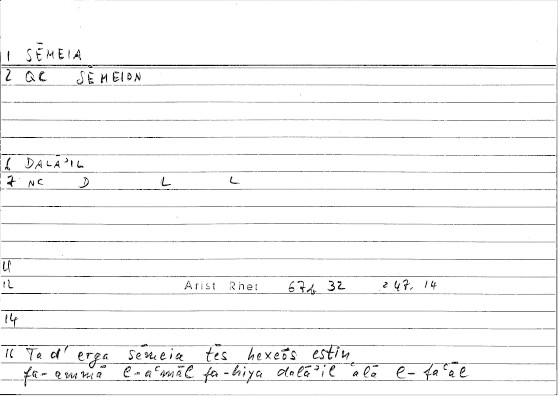 1 SĒMEIA
2 QC SĒMEION
6 DALĀʾIL
7 NC D L L
11
12 Arist Rhet 67b 32 247. 14
14
16 Ta d' erga sēmeia tēs hexeōs estin
fa-ammā l-aʿmāl fa-hiya dalāʾil ʿalā l-faʿāl